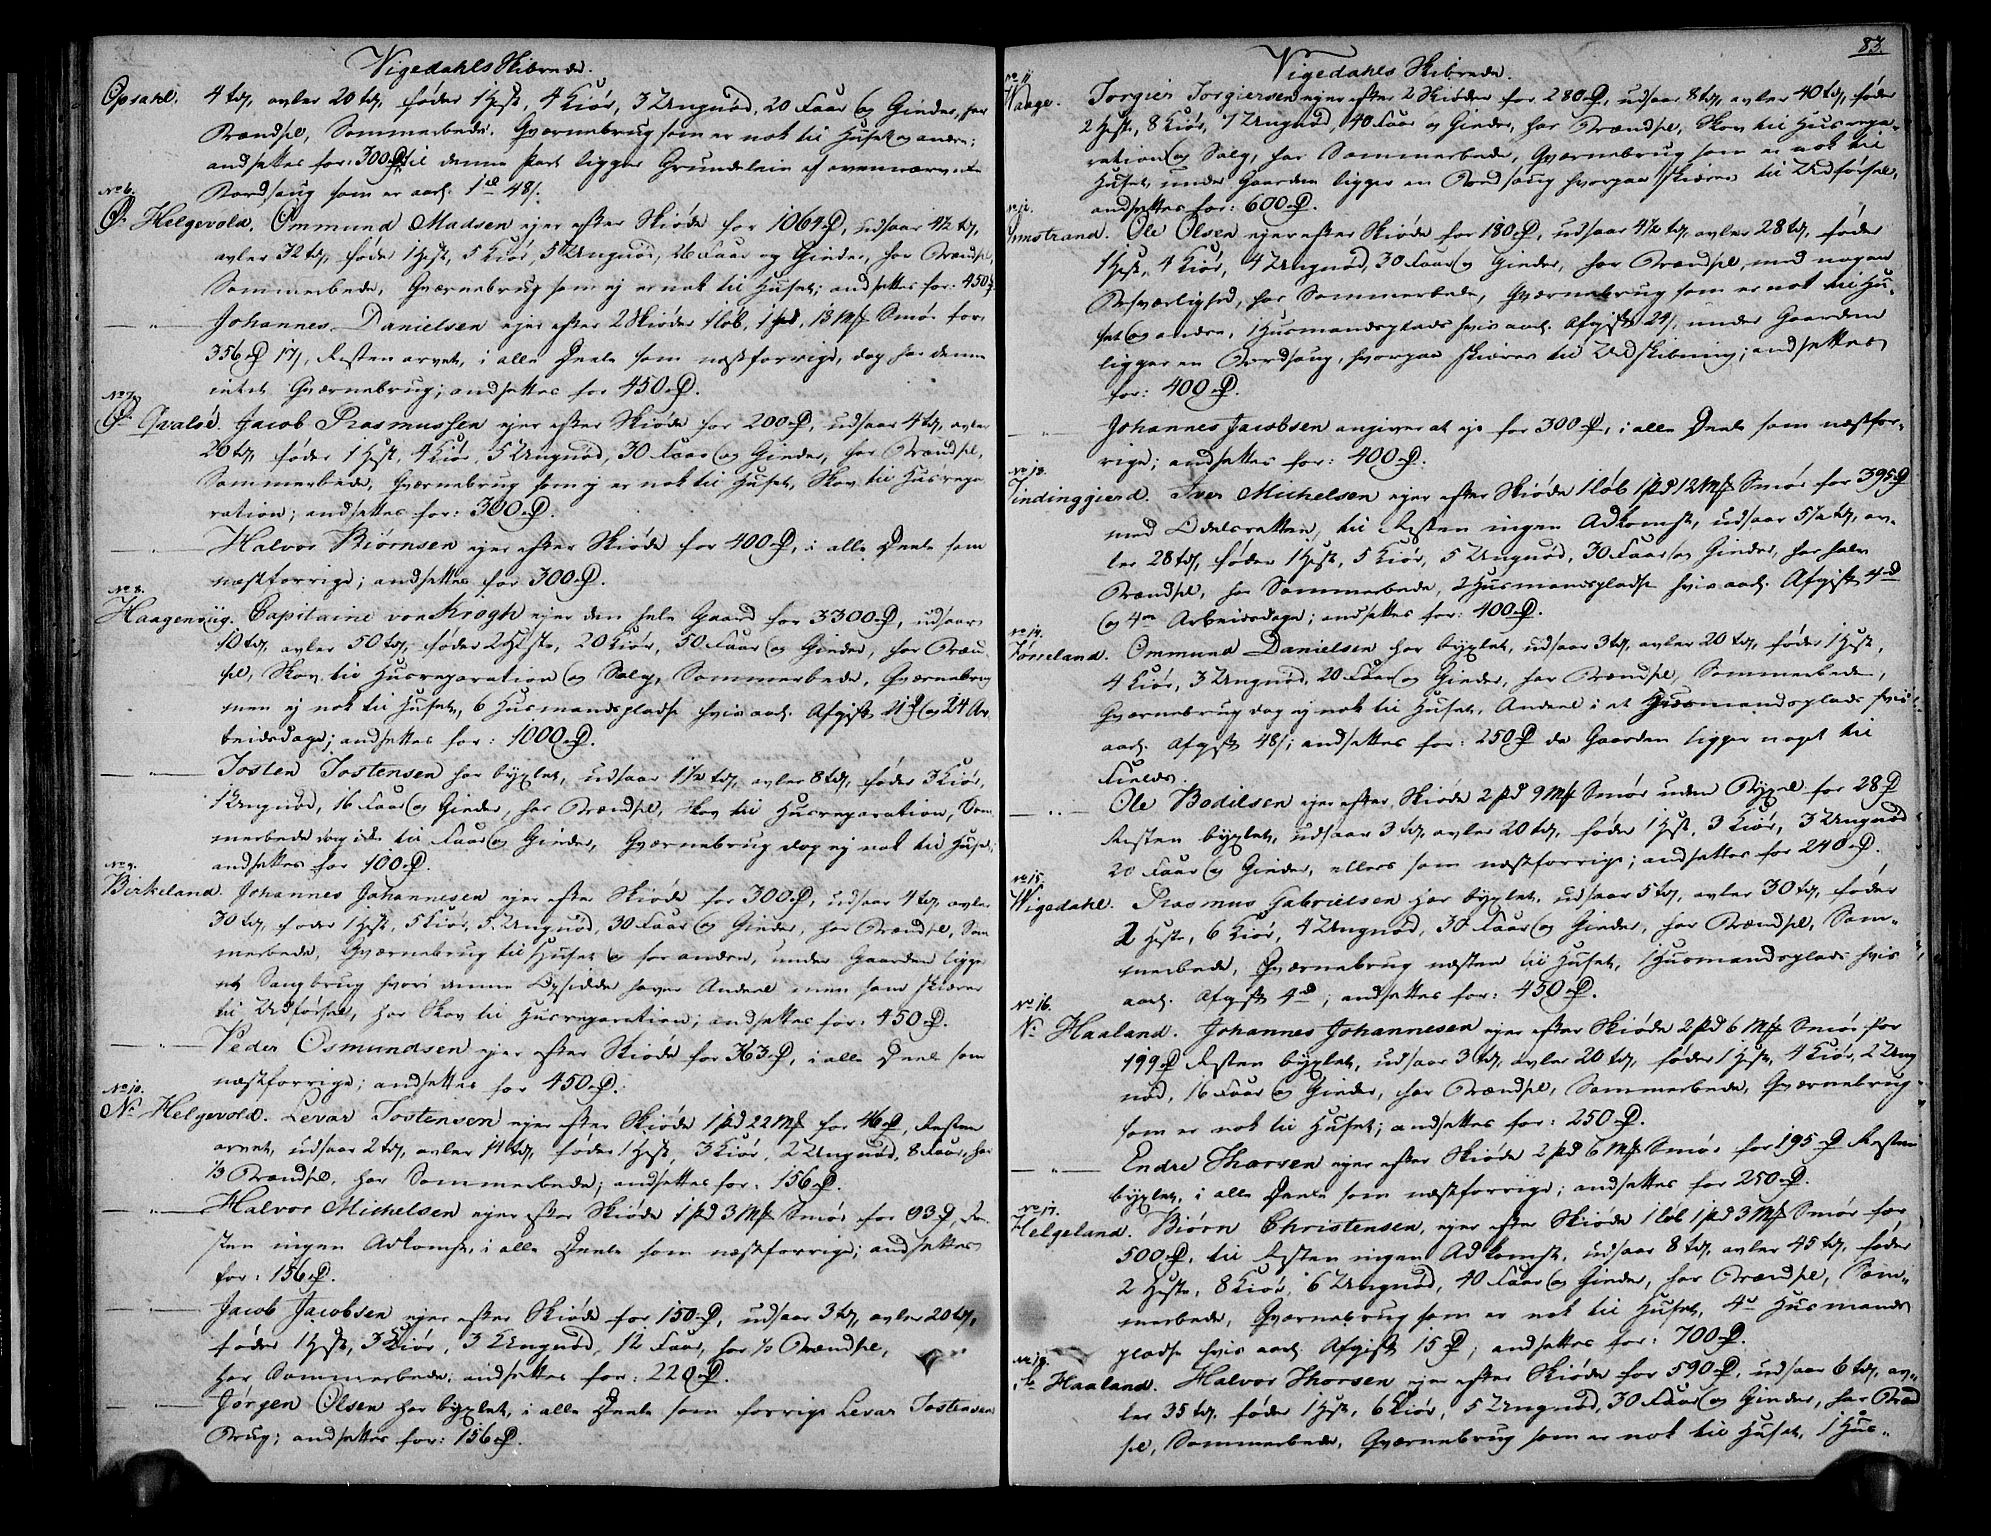 Vigedahls Skibrede.
Opsahl. 4 td, avler 20 td, føder 1 Hest, 4 Kiør, 3 Ungnød, 20 Faar og Gieder, har
Brændsel, Sommerbede, Qværnebrug som er nok til Huset og andre;
andsettes for: 300 rd. til denne Part ligger Grundeleie af ovennævnte
Bordsaug som er aarl. 1 rd 48 s.
No 6.
Ø. Helgevold. Ommund Madsen ejer efter Skiøde for 1064 rd, udsaar 4½ td,
avler 32 td, føder 1 Hest, 5 Kiør, 5 Ungnød, 26 Faar og Gieder, har Brændsel,
Sommerbede, Qværnebrug som ej er nok til Huset; andsettes for: 450 rd.
— " — Johannes Danielsen ejer efter 2 Skiøder 1 løb, 1 pd, 13 Mk Smør for
356 rd 17 s, Resten arvet, i alle Deele som næstforrige, dog har denne
intet Qværnebrug; andsettes for 450 rd.
No 7.
Ø. Qvaløe. Jacob Rasmussen ejer efter Skiøde for 200 rd, udsaar 4 td, avler
20 td, føder 1 Hest, 4 Kiør, 5 Ungnød, 30 Faar og Gieder, har Brændsel,
Sommerbede, Qværnebrug som ej er nok til Huset, Skov til Husrepa
ration; andsettes for: 300 rd.
— " — Halvor Biørnsen ejer efter Skiøde for 400 rd, i alle Deele som
næstforrige; andsettes for 300 rd.
No 8.
Haagenviig. Capitaine von Krogh ejer den hele Gaard for 3300 rd, udsaar
10 td, avler 50 td, føder 2 Heste, 20 Kiør, 50 Faar og Gieder, har Bræn-
sel, Skov til Husreparation og Salg, Sommerbede, Qværnebrug
men ej nok til Huset, 6 Husmandspladse hvis aarl. Afgift 11 rd og 24 Ar
beidsdage; andsettes for: 1000 rd.
— " — Tosten Tostensen har byxlet, udsaar 1½ td, avler 8 td, føder 3 Kiør,
1 Ungnød, 16 Faar og Gieder, har Brændsel, Skov til Husreparation, Som
merbede dog ikke til Faar og Gieder, Qværnebrug dog ej nok til Huset;
andsettes for 100 rd.
No 9.
Birkeland. Johannes Johannesen ejer efter Skiøde for 300 rd, udsaar 4 td, avler
30 td, føder 1 Hest, 5 Kiør, 5 Ungnød, 30 Faar og Gieder, har Brændsel, Som
merbede, Qværnebrug til Huset og for andre, under Gaarden ligger
et Saugbrug hvori denne Opsidder haver Andeel men som skiærer
til Udførsel, har Skov til Husreparation; andsettes for: 450 rd.
— " — Peder Osmundsen ejer efter Skiøde for 363 rd, i alle Deele som
næstforrige; andsettes for 450 rd.
No 10.
N. Helgevold. Levar Tostensen ejer efter Skiøde 1 pd 22 Mk for 46 rd, Resten
arvet, udsaar 2 td, avler 14 td, føder 1 Hest, 3 Kiør, 2 Ungnød, 8 Faar, har
⅓ Brændsel, har Sommerbede; andsettes for: 156 rd.
— " — Halvor Michelsen ejer efter Skiøde 1 pd 3 Mk Smør for 93 rd, Re-
sten ingen Adkomst, i alle Deele som næstforrige; andsettes
for: 156 rd.
— " — Jacob Jacobsen ejer efter Skiøde for 150 rd, udsaar 3 td, avler 20 td,
føder 1 Hest, 3 Kiør, 3 Ungnød, 12 Faar, har ⅓ Brændsel,
har Sommerbede, andsettes for: 220 rd.
— " — Jørgen Olsen har byxlet, i alle Deele som forrige Levar Tostensens
Brug; andsettes for: 156 rd.
83.
Vigedahls Skibrede.
No 11.
Haage. Torgier Torgiersen ejer efter 2 Skiøder for 280 rd, udsaar 8 td, avler 40 td, føder
2 Heste, 8 Kiør, 7 Ungnød, 40 Faar og Gieder, har Brændsel, Skov til Husrepa-
ration og Salg, har Sommerbede, Qværnebrug som er nok til
Huset, under Gaarden ligger en Bordsaug hvorpaa skiæres til Udførsel,
andsettes for: 600 rd.
No 12.
Imstrand. Ole Olsen ejer efter Skiøde for 180 rd, udsaar 4½ td, avler 28 td, føder
1 Hest, 4 Kiør, 4 Ungnød, 30 Faar og Gieder, har Brændsel, med nogen
Besværlighed, har Sommerbede, Qværnebrug som er nok til Hu-
set og andre, 1 Husmandsplads hvis aarl. Afgift 24 s, under Gaarden
ligger en Bordsaug, hvorpaa skiæres til Udskibning; andsettes
for: 400 rd.
— " — Johannes Jacobsen angiver at eje for 300 rd, i alle Deele som næstfor-
rige; andsettes for: 400 rd.
No 13.
Findinggierd. Iver Michelsen ejer efter Skiøde 1 løb 1 pd 12 Mk Smør for 395 rd
med Odelsretten, til Resten ingen Adkomst, udsaar 5½ td, av-
ler 28 td, føder 1 Hest, 5 Kiør, 5 Ungnød, 30 Faar og Gieder, har halv
Brændsel, har Sommerbede, 2 Husmandspladse hvis aarl. Afgift 4 rd
og 4re Arbeidsdage; andsettes for: 400 rd.
No 14.
Førreland. Ommund Danielsen har byxlet, udsaar 3 td, avler 20 td, føder 1 Hest,
4 Kiør, 3 Ungnød, 20 Faar og Gieder, har Brændsel, Sommerbede,
Qværnebrug dog ej nok til Huset, Andeel i et Husmandsplads hvis
aarl. Afgift 48 s; andsettes for: 250 rd da Gaarden ligger noget til
Fields.
— " — Ole Bodilsen ejer efter Skiøde 2 pd 9 Mk Smør uden Byxel for 28 rd
Resten byxlet, udsaar 3 td, avler 20 td, føder 1 Hest, 3 Kiør, 3 Ungnød
20 Faar og Gieder, ellers som næstforrige; andsettes for 240 rd.
No 15.
Wigedahl. Rasmus Gabrielsen har byxlet, udsaar 5 td, avler 30 td, føder
2 Heste, 6 Kiør, 4 Ungnød, 30 Faar og Gieder, har Brændsel, Som-
merbede, Qværnebrug næsten til Huset, 1 Husmandsplads hvis
aarl. Afgift 4 rd; andsettes for: 450 rd.
No 16.
N. Haaland. Johannes Johannesen ejer efter Skiøde 2 pd 6 Mk Smør for
199 rd Resten byxlet, udsaar 3 td, avler 20 td, føder 1 Hest, 4 Kiør, 2 Ung
nød, 16 Faar og Gieder, har Brændsel, Sommerbede, Qværnebrug
som er nok til Huset; andsettes for: 250 rd.
— " — Endre Thorsen ejer efter Skiøde 2 pd 6 Mk Smør for 195 rd Resten
byxlet, i alle Deele som næstforrige; andsettes for 250 rd.
No 17.
Helgeland. Biørn Christensen, ejer efter Skiøde 1 løb 1 pd 3 Mk Smør for
500 rd, til Resten ingen Adkomst, udsaar 8 td, avler 45 td, føder
2 Heste, 8 Kiør, 6 Ungnød, 40 Faar og Gieder, har Brændsel, Som-
merbede, Qværnebrug som er nok til Huset, 4re Husmands
pladse hvis aarl. Afgift 15 rd; andsettes for: 700 rd.
No 18.
Haaland. Halvor Thorsen ejer efter Skiøde for 590 rd, udsaar 6 td, av-
ler 35 td, føder 1 Hest, 6 Kiør, 5 Ungnød, 30 Faar og Gieder, har Brænd
sel, Sommerbede, Qværnebrug som er nok til Huset, 1 Hus-